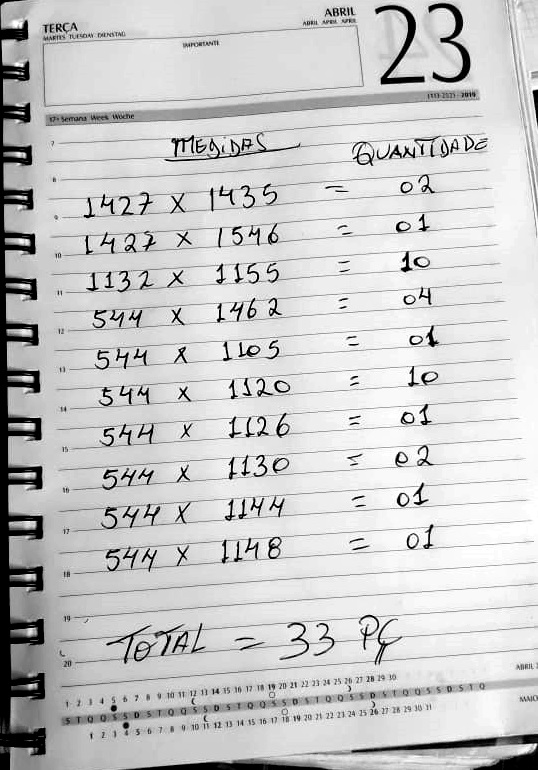 TERÇA
MARTES TUESDAY DIENSTAG
ABRIL
ABRIL APRIL APRIL
23
IMPORTANTE
17ª Semana Week Woche
(113-252) - 2019
7
MEDIDAS QUANTIDADE
8
1427 X 1435 = 02
9
1427 X 1546 = 01
10
1132 X 1155 = 10
11
544 X 1462 = 04
12
544 X 1105 = 01
13
544 X 1120 = 10
14
544 X 1126 = 01
15
544 X 1130 = 02
16
544 X 1144 = 01
17
544 X 1148 = 01
18
19
TOTAL = 33 PÇ
20
ABRIL
1 2 3 4 5 6 7 8 9 10 11 12 13 14 15 16 17 18 19 20 21 22 23 24 25 26 27 28 29 30
S T Q Q S S D S T Q Q S S D S T Q Q S S D S T Q Q S S D S T Q Q S S D S T Q
1 2 3 4 5 6 7 8 9 10 11 12 13 14 15 16 17 18 19 20 21 22 23 24 25 26 27 28 29 30 31
MAIO